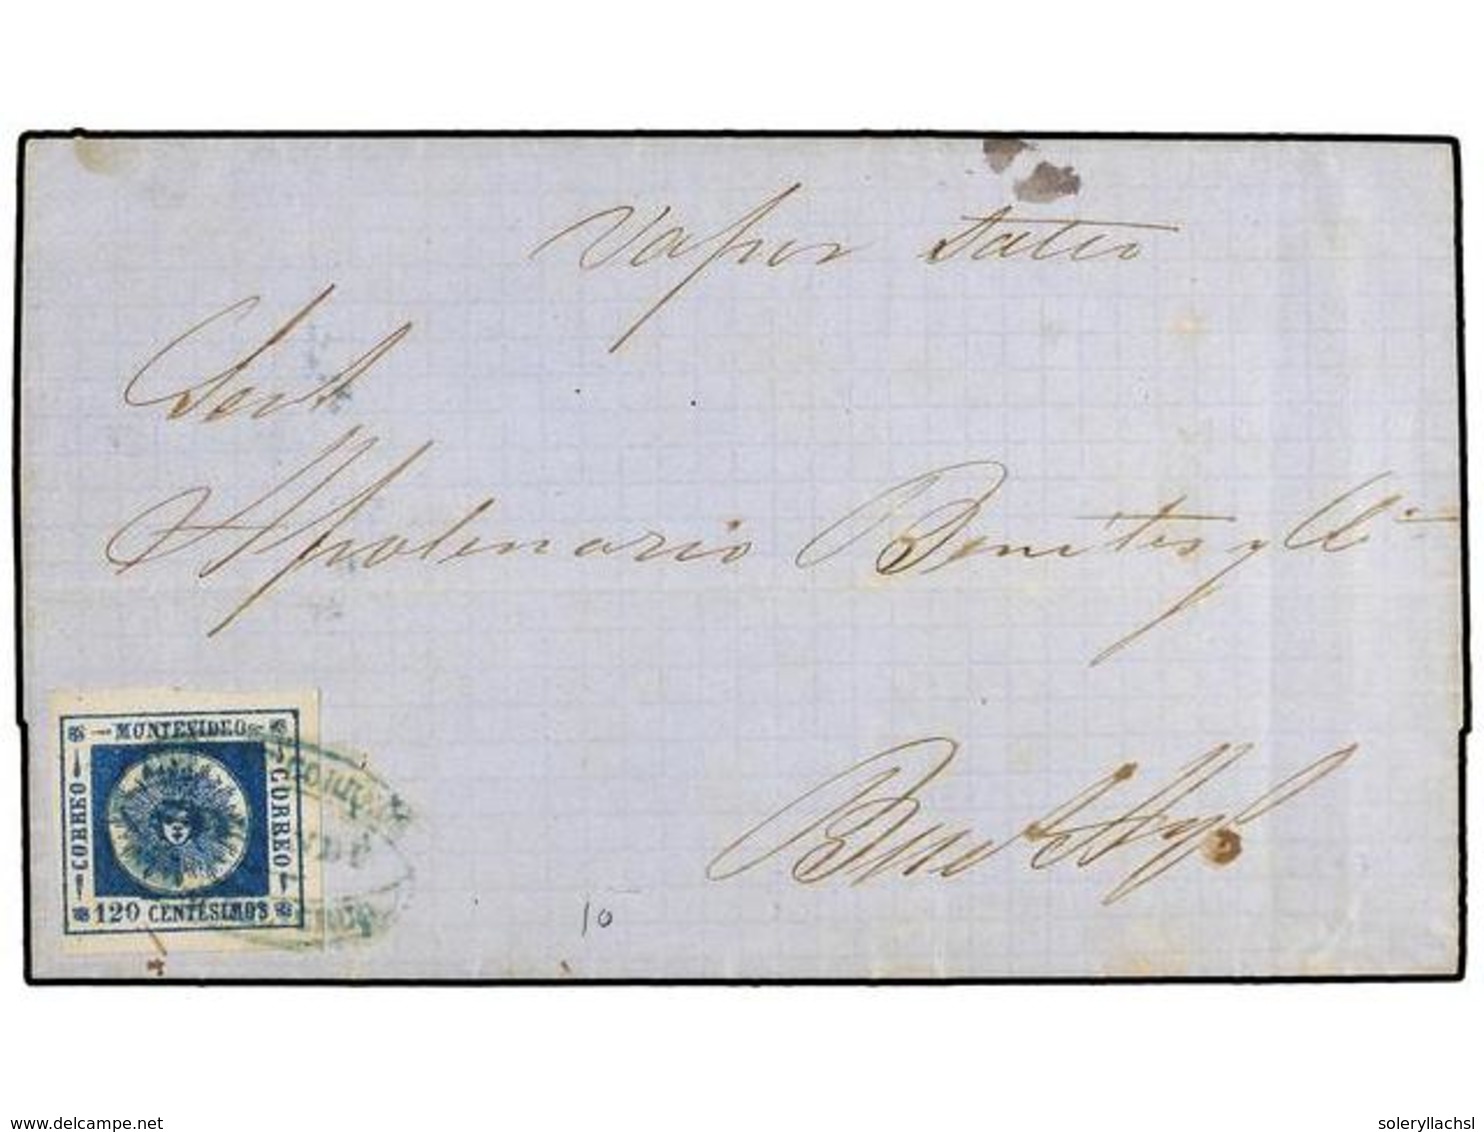 Vapor Salto
Apolenario Benites y Ca
Bue Ay
MONTEVIDEO
CORREO
CORREO
120 CENTÉSIMOS
CORREO
10
www.delcampe.net
solerylIachsl